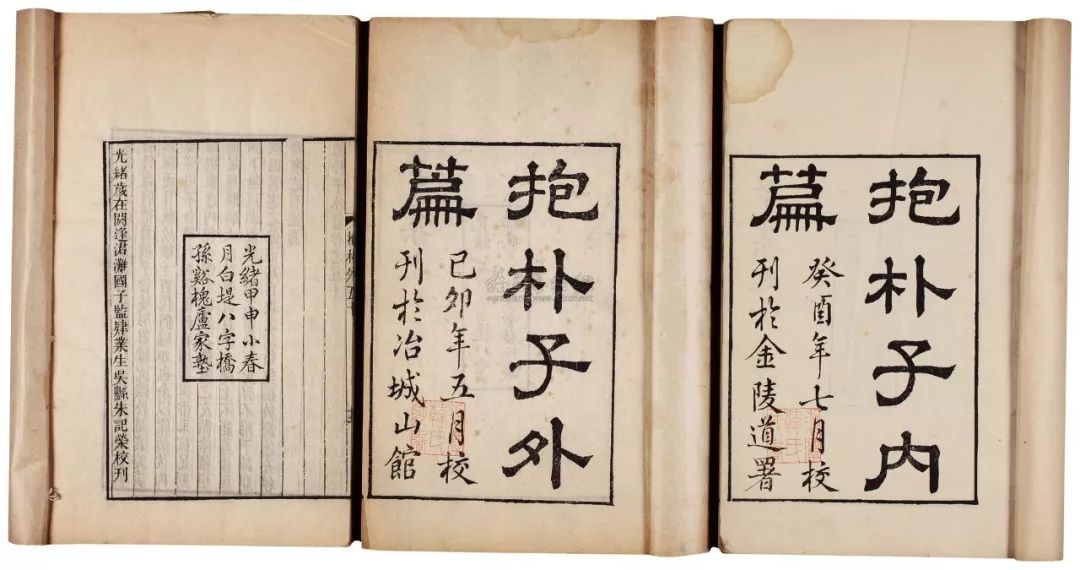 抱朴子內
篇
癸酉年七月校
刊於金陵道署
抱朴子外
篇
己卯年五月校
刊於冶城山館
光緒甲申小春
月白堤八字橋
孫谿槐廬家塾
光緒歲在閼逢涒灘國子監肄業生吳縣朱記榮校刊